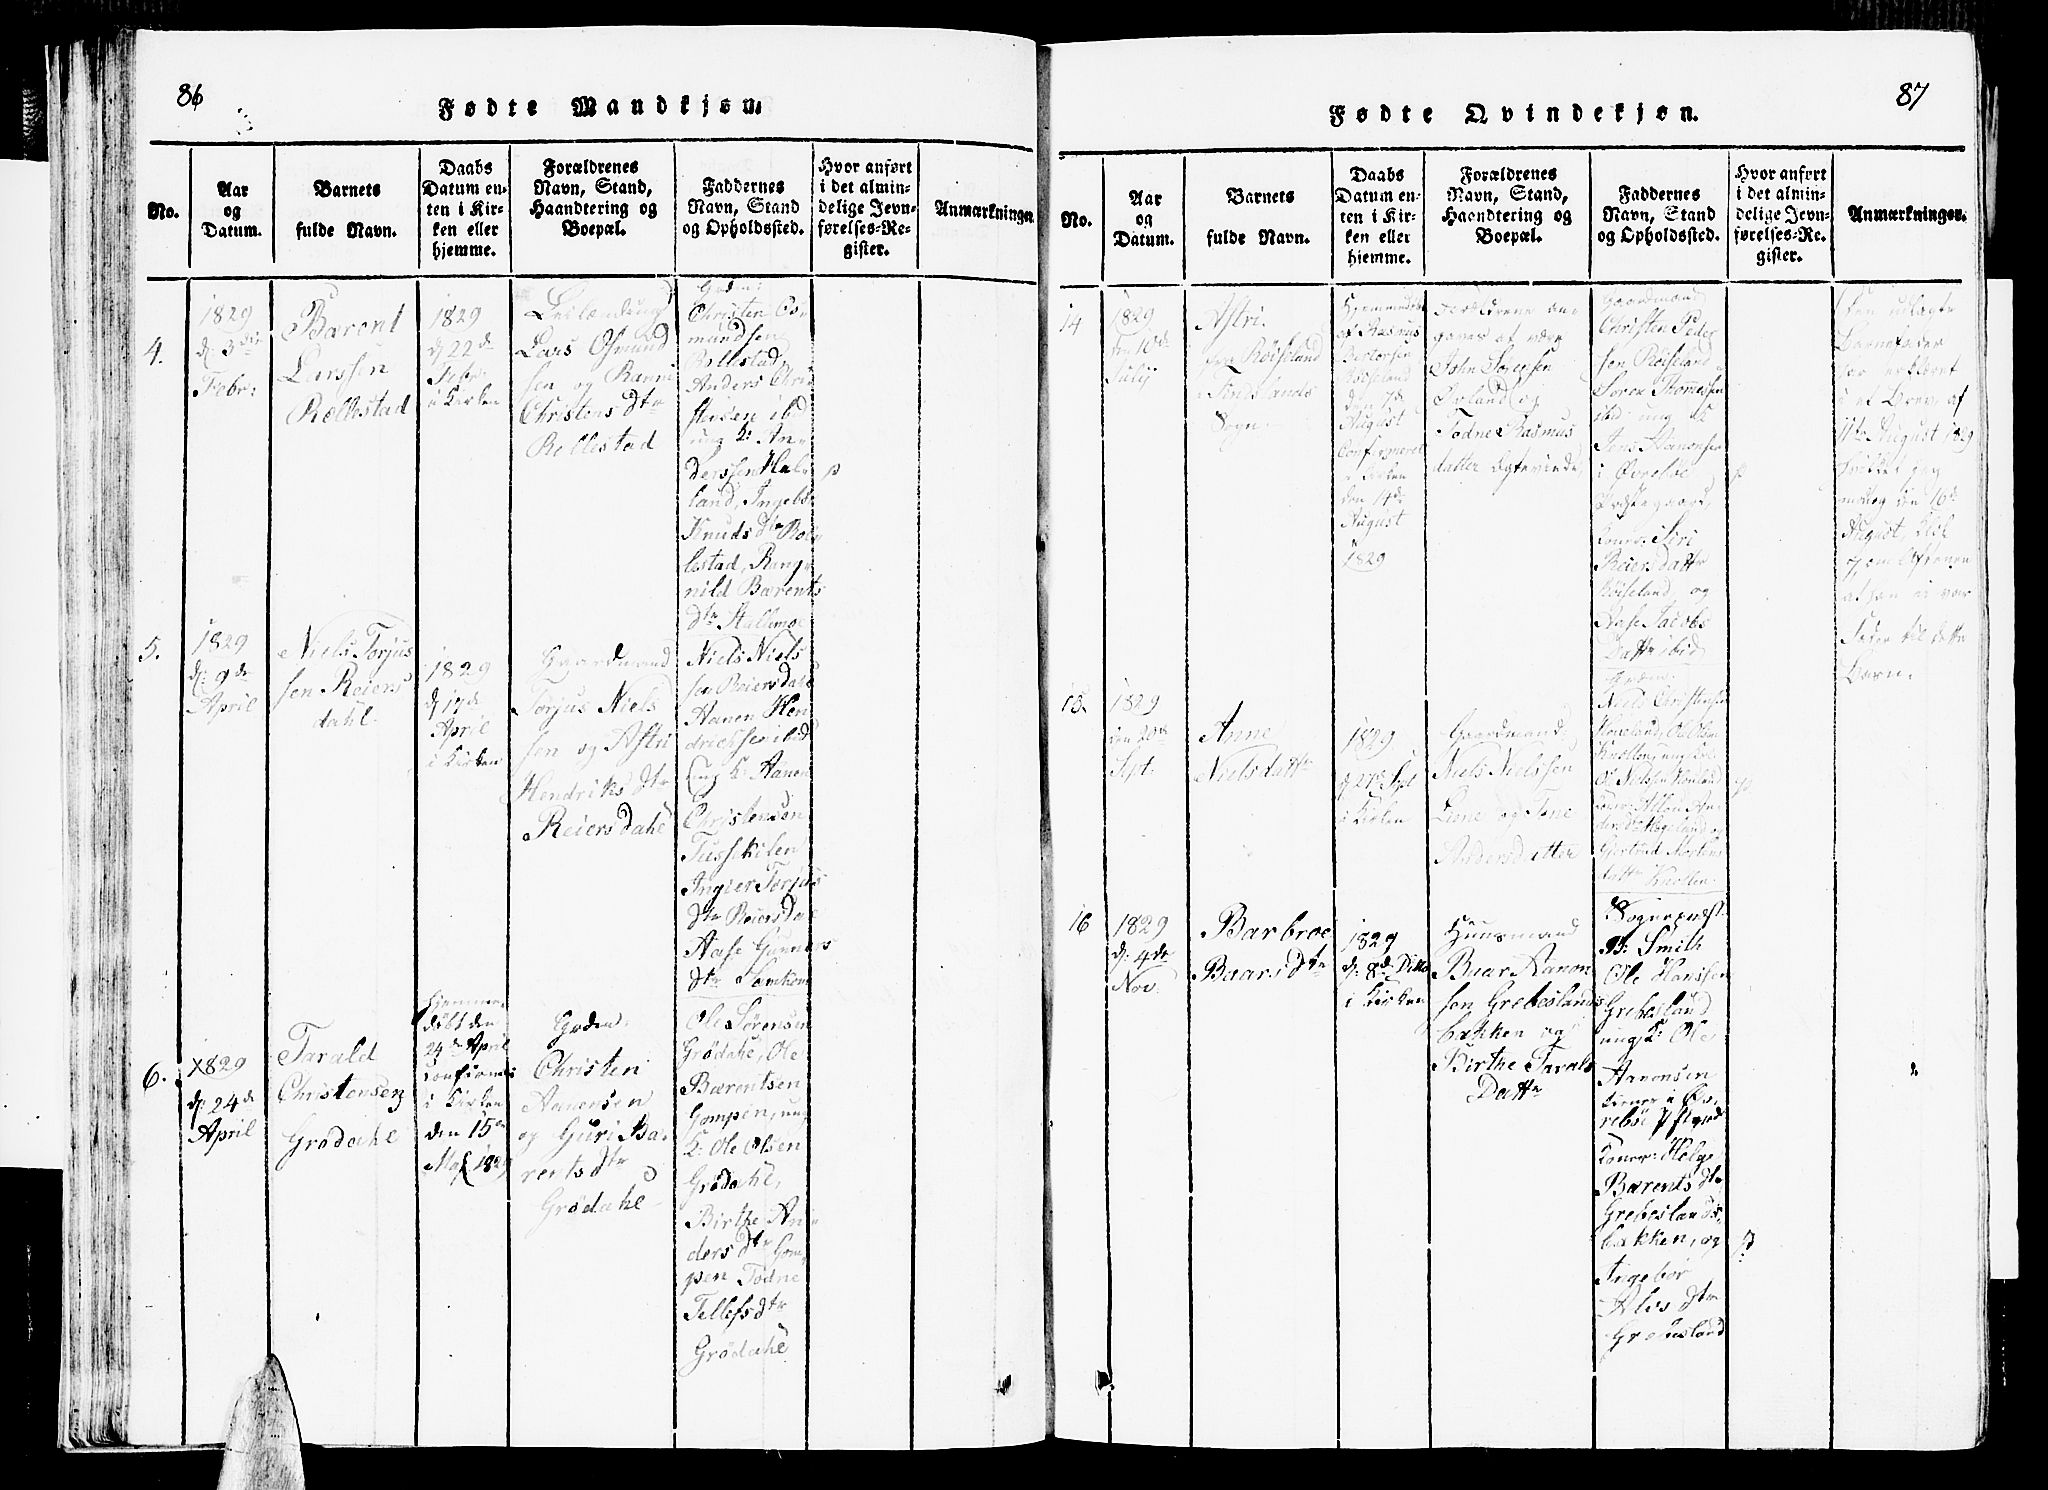 86
Fødte Mandkjøn.
No.
Aar
og
Datum.
Barnets
fulde Navn.
Daabs
Datum en-
ten i Kir-
ken eller
hjemme.
Forældrenes
Navn, Stand,
Haandtering og
Boepæl.
Faddernes
Navn, Stand
og Opholdssted.
Hvor anført
i det almin-
delige Jevn-
førelses-Re-
gister.
Anmærkninge
4.
1829
d: 3die
Febr:
Barent
Larssen
Rollestad
1829
d 22de
Febr:
i Kirken
Leilænding
Lars Osmund
sen og Ranni
Christens dtr
Rollestad
Grdm:
Christen Os-
mundsen
Rollestad,
Anders Chri
stensen ibd
ung K: An-
derssen
land, Ingeb:
Knuds dtr Rol-
lestad, Rang-
nild Barents
dtr Stallemoe
p
5.
1829
d: 9de
April
Niels Torjus
sen Reiers
dahl.
1829
d 17de
April
i Kirken
Gaardmand
Torjus Niels
sen og Astri
Hendriks dtr
Reiersdahl
Niels Niels
sen Reiersdahl
Aanen Hen
drichsen ibid
ung K: Aanen
Christensen
Tusseholen
Ingier Torjus
dtr Reiersdal
Aase Gunners
dtr
6.
1829
d: 24de
April
Tarald
Christensen
Grødahl
hjemme-
døbt den
24de April
Confirmt
i Kirken
den 15de
Maj 1829
Grdm.
Christen
Aanensen
og Guri Ba-
rents dtr
Grødahl
Ole Sørensen
Grødahl, Ole
Bærentsen
Gompen, ung
K: Ole Olsen
Grødahl,
Birthe An-
ders dtr Gom-
pen Todne
Tellefs dtr
Grødahl
87
Fødte Qvindekjøn.
No.
Aar
og
Datum.
Barnets
fulde Navn.
Daabs
Datum en-
ten i Kir-
ken eller
hjemme.
Forældrenes
Navn, Stand,
Haandtering og
Boepæl.
Faddernes
Navn, Stand
og Opholdssted.
Hvor anført
i det almin-
delige Jevn-
førelses-Re-
gister.
Anmærkninger.
14
1829
den 10de
Julij
Astri.
fra Røiseland
i
Sogn.
Hjemmedøbt
af Rasmus
Røiseland
den 7de
August
Confirmeret
i Kirken
den 14de
August
1829
Forældrene an-
gaves at være
John Sørensen
Øvland og
Todne Rasmus
datter
Gaardmand
Christen Peder
sen Røiseland
Soren Thomessen
ibid: ung K:
Jens Aanonsen
i Øvrebøe
Præstegaard,
Koner: Siri
Reiersdattr
Røiseland, og
Aase Jacobs
Dattr ibid
p
Den udlagte
Barnefader
har erklæret
i et Brev, af
11te August 1829
hvilket jeg
modtog den 16de
August, Klok
7, om Aftenen
at han ei var
Fader til dette
Barn.
15.
1829
den 20de
Sept:
Anne
Nielsdattr
1829
d 27de Sept
i Kirken
Gaardmand
Niels Nielssen
Liene og Tone
Andersdatter
Niels Christensen
Ole Olsen
Knollen, ung K:
Ol Nielsen
Gjertrud Mortens
Dattr Knollen.
p
16
1829
d: 4de
Nov.
Barbroe
Baarsdtr
1829
d: 8de Dito
i Kirken
Huusmand
Baar Aanon
sen Grebeslands
bakken og
Birthe Tarals
Dattr
Sognepræst
B: Smith
Ole Hanssen
Grebesland
ung K: Ole
Aanonsen
tiener i Øv-
rebøe Pstgrd
Koner: Helge
Bærents dtr
Grebeslands-
bakken, og
Ingebor
Alvs dtr
Grebesland
p